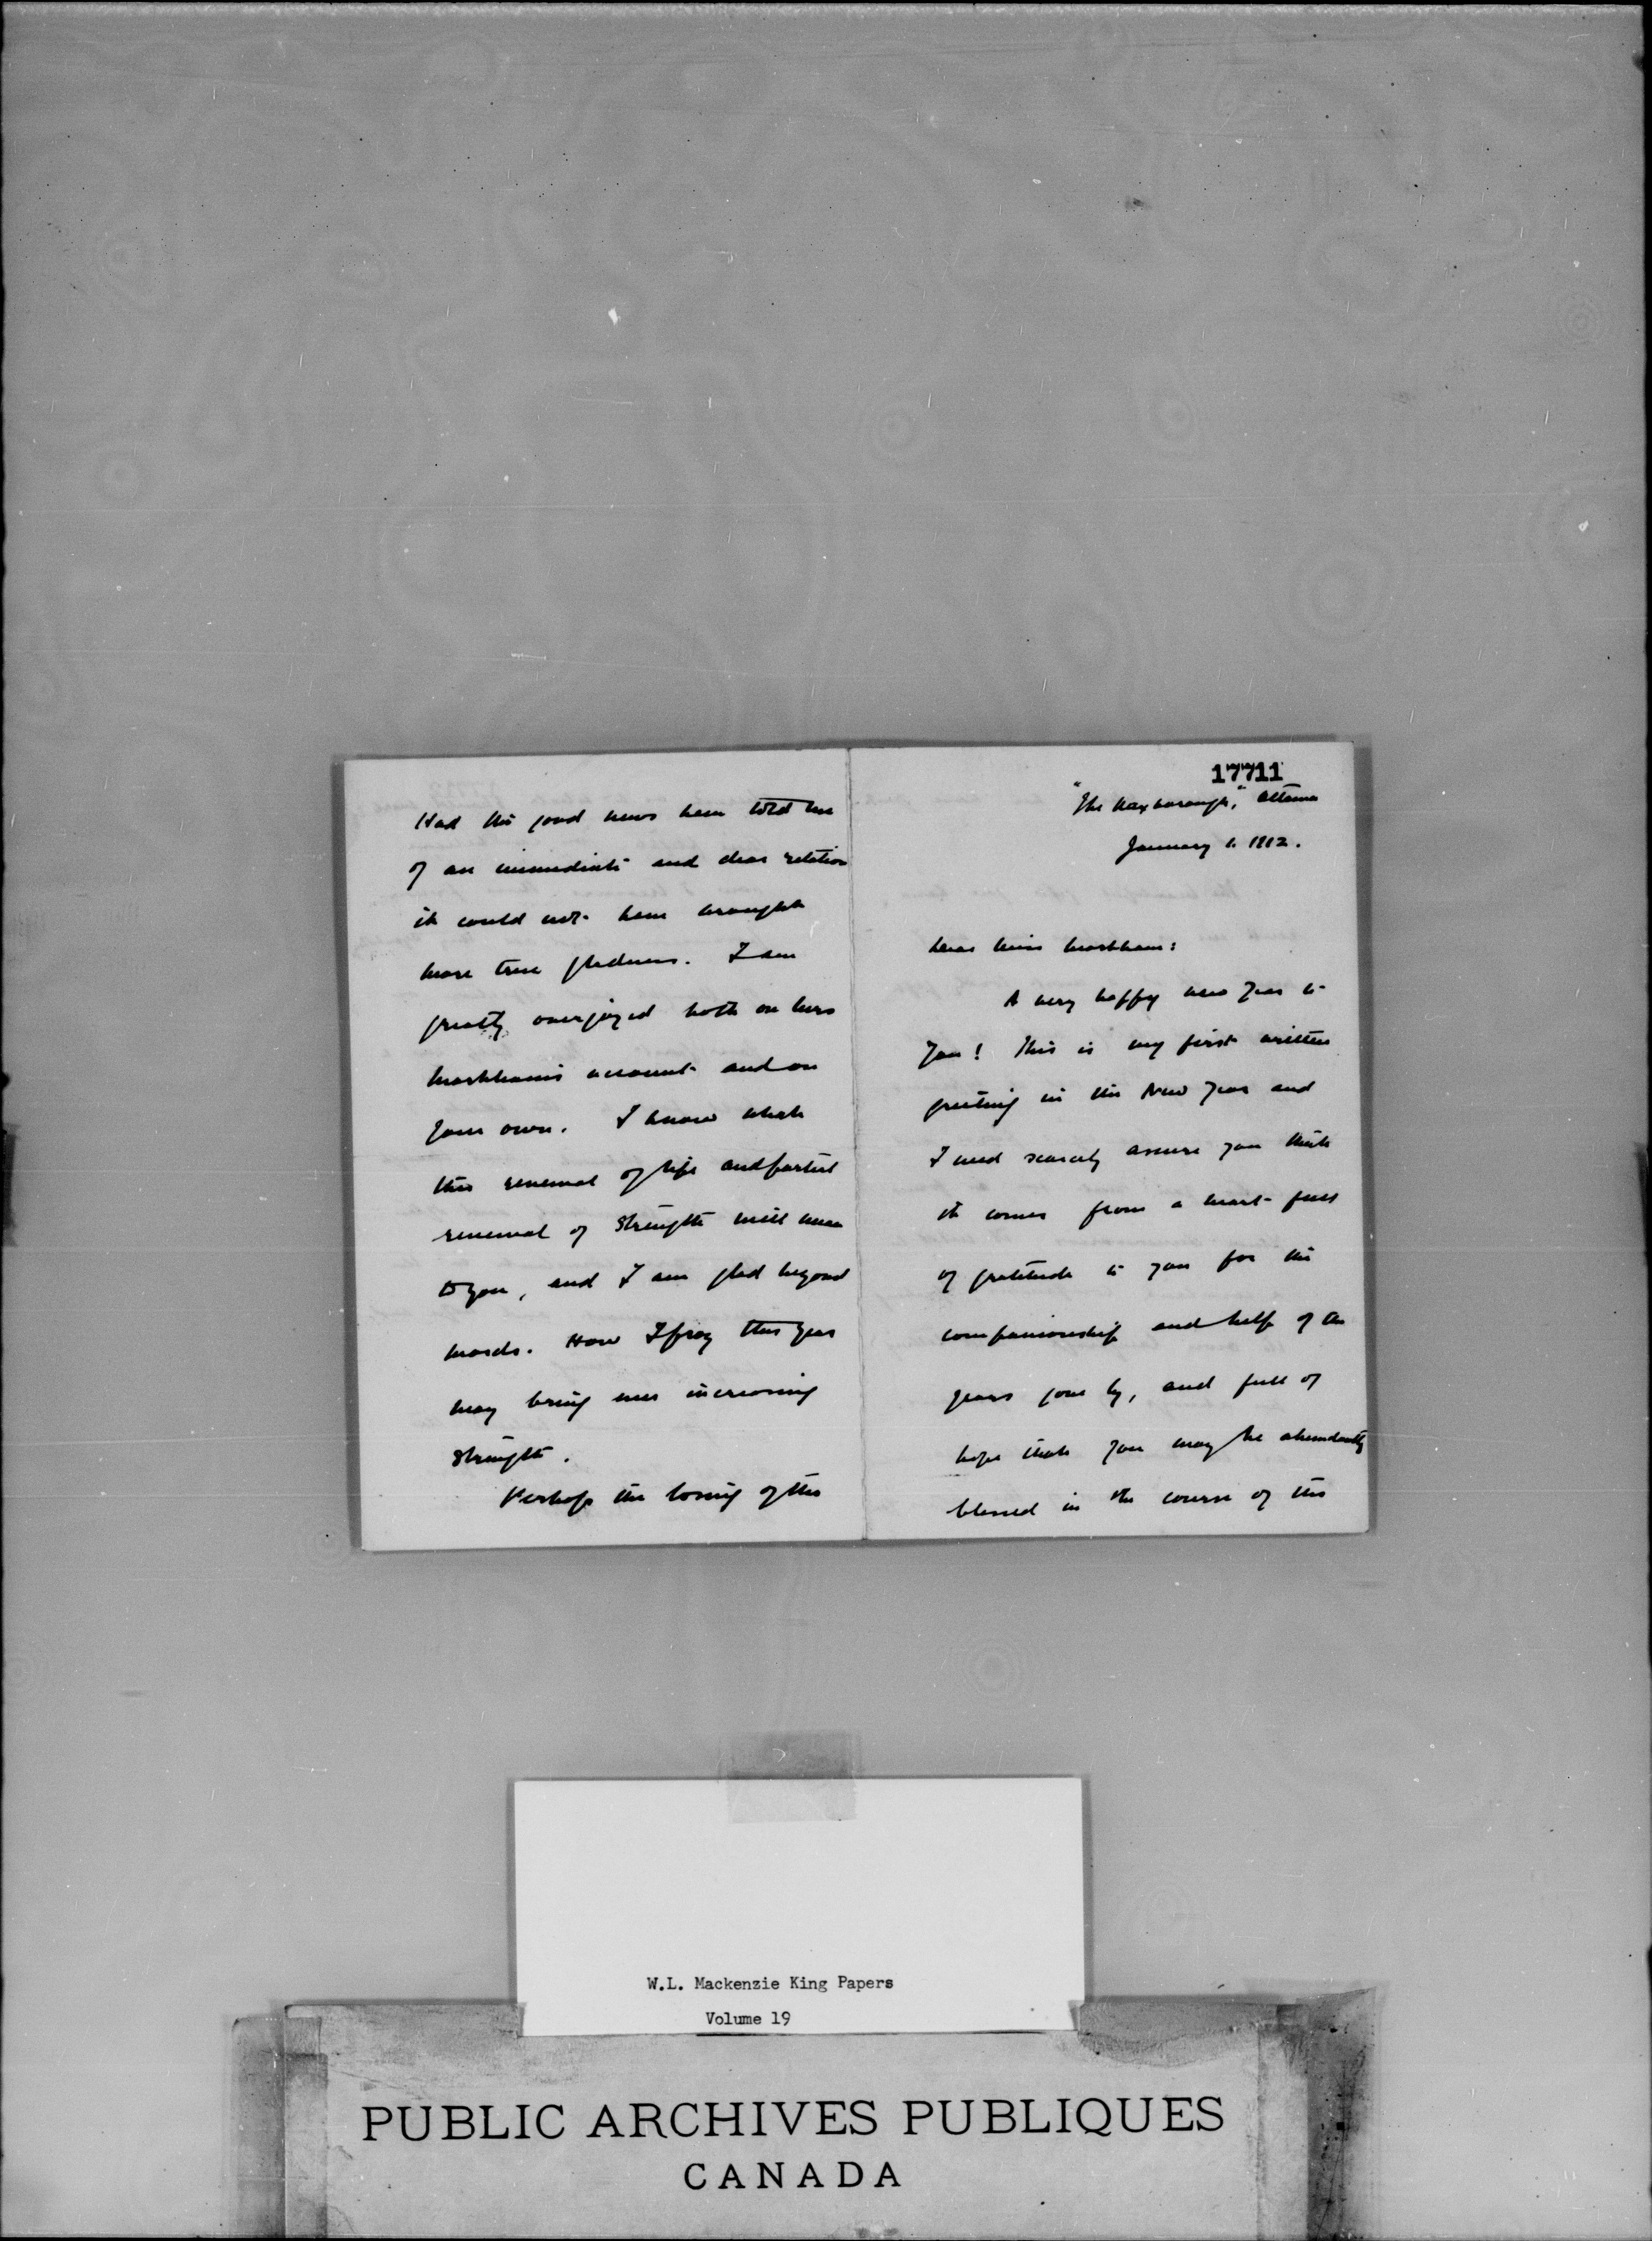 Had the good news been told me
of an immediate and dear relation
it could not have brought
more true gladness. I am
greatly overjoyed both on Mrs
Markham's account and on
your own. I know what
this renewal of life and partial
renewal of strength will mean
to you, and I am glad beyond
words. How I pray this year
may bring ever increasing
strength.
Perhaps the losing of this
17711
"The Roxborough," Ottawa
January 1. 1912.
Dear Miss Markham:
A very happy New Year to
you! This is my first written
greeting in the New Year and
I need scarcely assure you that
it comes from a heart full
of gratitude to you for the
companionship and help of the
years gone by, and full of
hope that you may be abundantly
blessed in the course of this
W.L. Mackenzie King Papers
Volume 19
PUBLIC ARCHIVES PUBLIQUES
CANADA